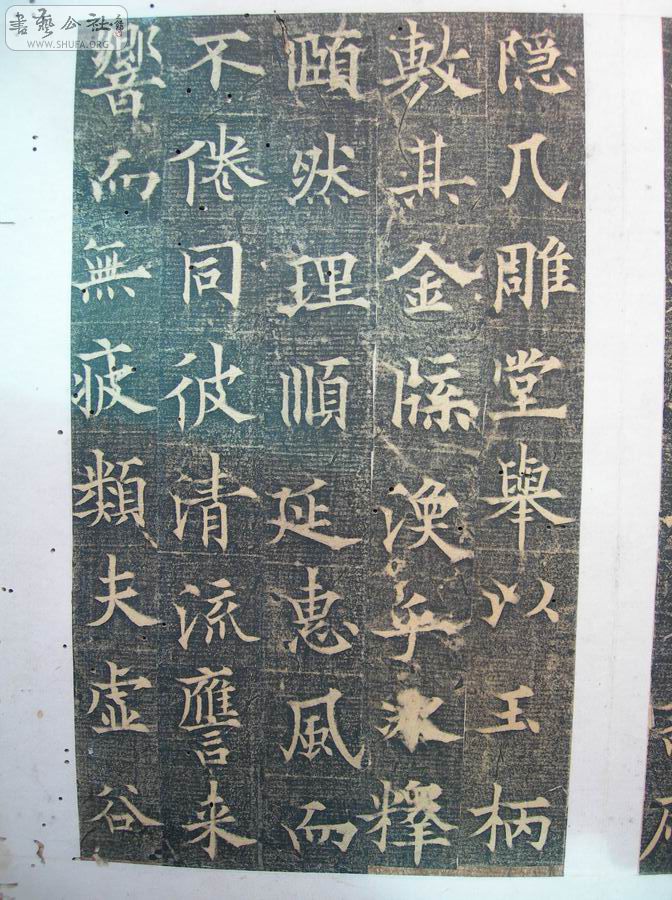 隐几雕堂舉以玉柄
敷其金牒渙乎冰釋
頤然理順延惠風而
不倦同彼清流應来
響而無疲類夫虚谷
書藝公社
WWW.SHUFA.ORG